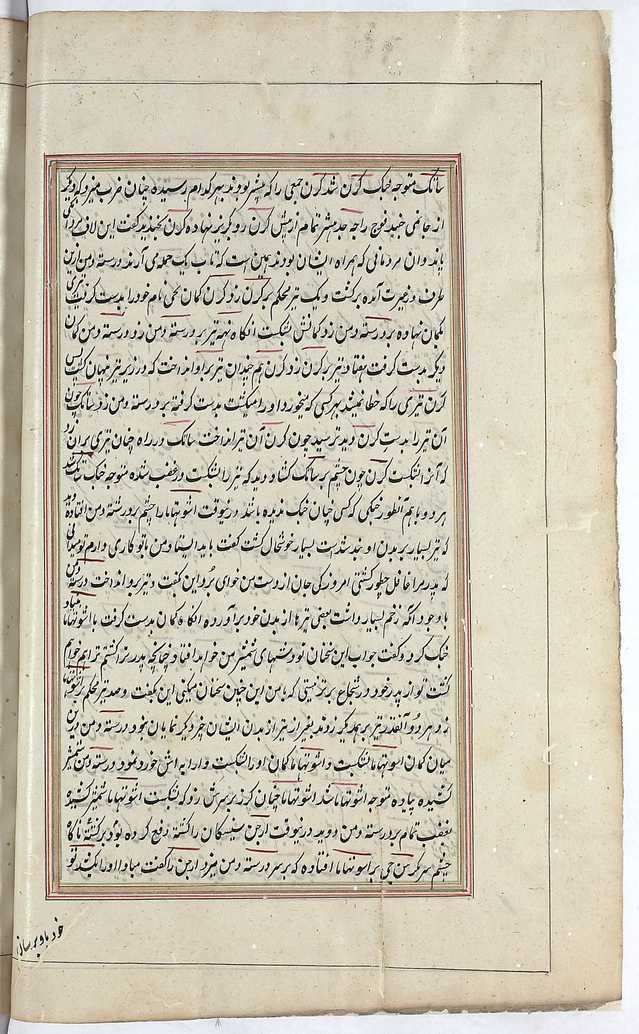 ساتک متوجه جنک کرن شد کرن جمعی را که پیشتر بودند بهر کدام رسیده چنان ضرب میزد که دیگر
از جا نمی جنبد فوج راجه جدهشتر تمام از پیش کرن رو گریز نهاده کرن بخندید گفت این لاف مردانگی
باید وان مردمانی که همراه ایشان بودند همین است که تاب یک حمله می آرند درسته دمن ازین
طرف در غیرت آمده برگشت و یک تیر محکم بر کرن زد کرن کمان بجی نام خود را بدست گرفت تیری
بکمان نهاده بر درسته دمن زد کمانش بشکست آنگاه نه تیر بر درسته دمن زد درسته دمن کمان
دیگر بدست گرفت هفتاد تیر بر کرن زد کرن هم چندان تیر بر او انداخت که در زیر تیر پنهان گشت پس
کرن تیری را که خطا نمیشد بهر کسی که میخورد او را میکشت بدست گرفته بر درسته دمن زد ساتک چون
آن تیر را بدست کرن دید ترسید چون کرن آن تیر انداخت ساتک در راه چنان تیری بران زد
که آنرا شکست کرن چون چشم بر ساتک گشاد دید که تیر را شکست در غضب شده متوجه جنک ساتک شد
هر دو با هم آنطور جنگی که کسی چنان جنک ندیده باشد درینوقت اشوتهاما را چشم بر درسته دمن افتاد دید
که تیر بسیار بر بدن او بند شده است بسیار خوشحال گشت گفت باید ایستاد من با تو کاری دارم تو میدانی
که پدر مرا غافل چطور کشتی امروز کی جان از دست من خواهی برد این گفت و تیر برو انداخت درسته دمن
با وجود آنکه زخم بسیار داشت بعضی تیرها از بدن خود برآورده آنگاه کمان بدست گرفت با اشوتهاما بنیاد
جنک کرد و گفت جواب این سخنان تو دستهای شمشیر من خواهد افتاد چنانچه پدر ترا کشتم ترا هم خواهم
کشت تو از پدر خود در شجاع برتر نیستی که با من این چنین سخنان میکنی این بگفت و صد تیر محکم بر اشوتهاما
زد هر دو آنقدر تیر بر همدیگر زدند بغیر از تیر از بدن ایشان چیز دیگر نمایان نبود درسته دمن درین
میان کمان اشوتهاما شکست و اشوتهاما کمان او را شکست و ارابه اش خورد نمود درسته دمن شمشیر
کشیده پیاده متوجه اشوتهاما شد اشوتهاما چنان گرز بر سرش زد که شکست اشوتهاما شمشیر کشیده
بغضب تمام بر درسته دمن دوید درینوقت ارجن سیسکان را کشته دفع کرده بود برگشته ناگاه
چشم سریکرشن جی بر اشوتهاما افتاده که بر سر درسته دمن میرود ارجن را گفت مبادا او را بکشد تو
خود باو برسان